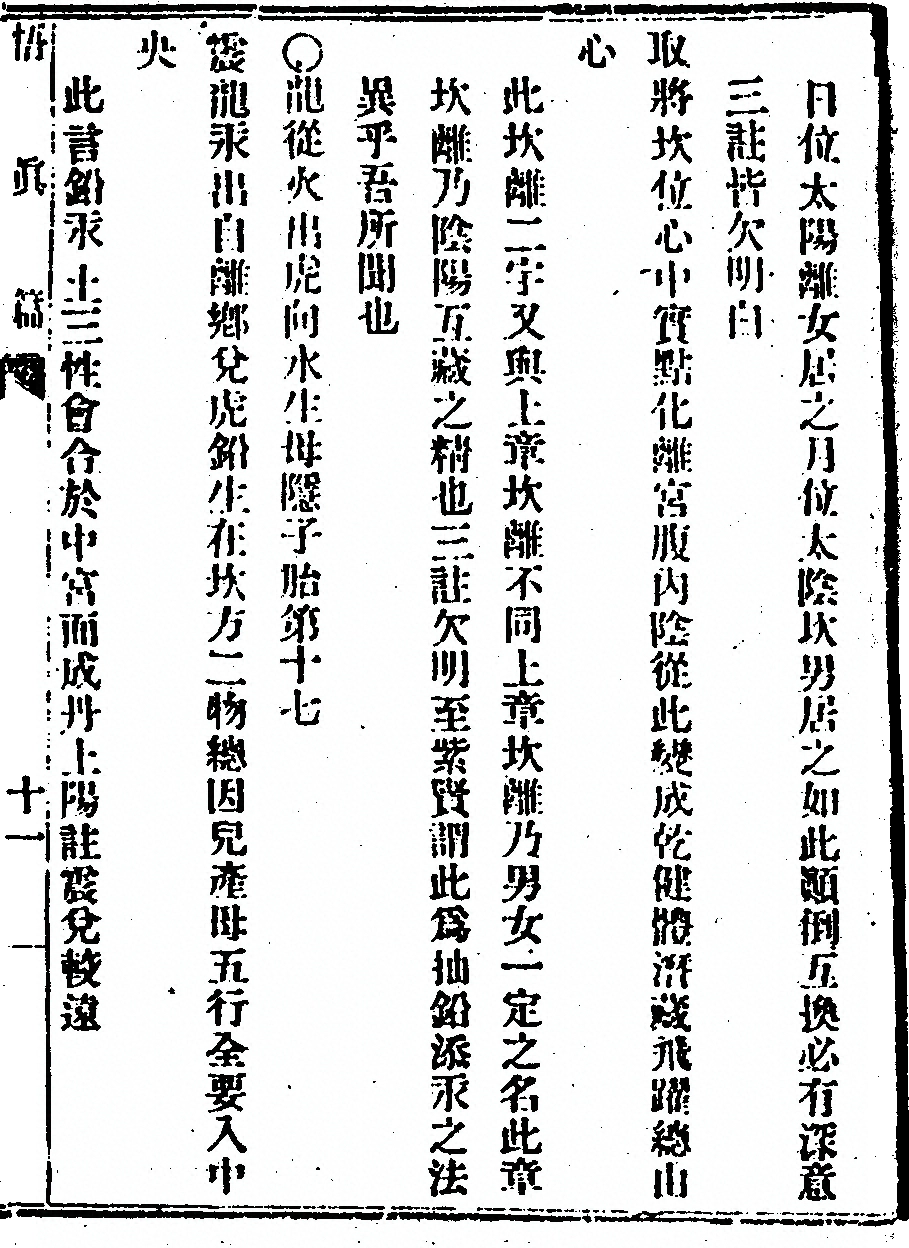 日位太陽離女居之月位太陰坎男居之如此顛倒互換必有深意
三註皆欠明白
取將坎位心中實點化離宮腹內陰從此變成乾健體潛藏飛躍總由
心
此坎離二字又與上章坎離不同上章坎離乃男女一定之名此章
坎離乃陰陽互藏之精也三註欠明至紫賢謂此爲抽鉛添汞之法
異乎吾所聞也
〇龍從火出虎向水生母隱子胎第十七
震龍汞出自離鄉兌虎鉛生在坎方二物總因兒產母五行全要入中
央
此言鉛汞土三性會合於中宮而成丹上陽註震兌較遠
悟眞篇 十一